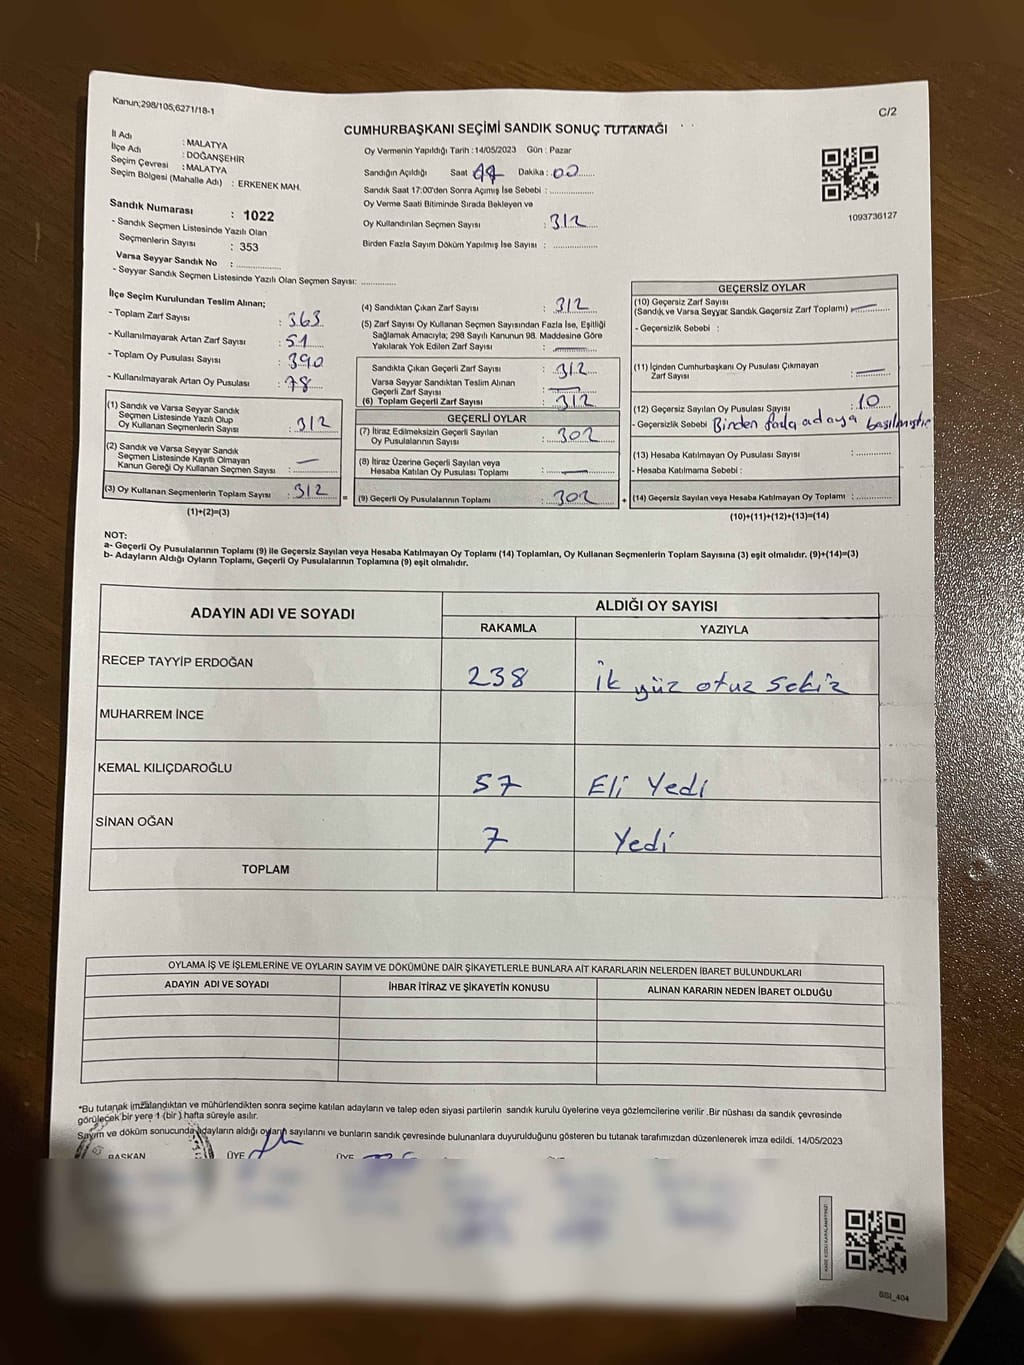 Kanun;298/105,6271/18-1
C/2
CUMHURBAŞKANI SEÇİMİ SANDIK SONUÇ TUTANAĞI
İl Adı : MALATYA
İlçe Adı : DOĞANŞEHİR
Seçim Çevresi : MALATYA
Seçim Bölgesi (Mahalle Adı) : ERKENEK MAH.
Oy Vermenin Yapıldığı Tarih :14/05/2023 Gün : Pazar
Sandığın Açıldığı Saat Dakika : 00
Sandık Saat 17:00'den Sonra Açılmış İse Sebebi :
Oy Verme Saati Bitiminde Sırada Bekleyen ve
Oy Kullandırılan Seçmen Sayısı : 312
Birden Fazla Sayım Döküm Yapılmış İse Sayısı :
1093736127
Sandık Numarası : 1022
- Sandık Seçmen Listesinde Yazılı Olan
Seçmenlerin Sayısı : 353
Varsa Seyyar Sandık No :
- Seyyar Sandık Seçmen Listesinde Yazılı Olan Seçmen Sayısı:
İlçe Seçim Kurulundan Teslim Alınan;
- Toplam Zarf Sayısı : 363
- Kullanılmayarak Artan Zarf Sayısı : 51
- Toplam Oy Pusulası Sayısı : 390
- Kullanılmayarak Artan Oy Pusulası : 78
(1) Sandık ve Varsa Seyyar Sandık
Seçmen Listesinde Yazılı Olup
Oy Kullanan Seçmenlerin Sayısı : 312
(2) Sandık ve Varsa Seyyar Sandık
Seçmen Listesinde Kayıtlı Olmayan
Kanun Gereği Oy Kullanan Seçmen Sayısı : —
(3) Oy Kullanan Seçmenlerin Toplam Sayısı : 312 =
(1)+(2)=(3)
(4) Sandıktan Çıkan Zarf Sayısı : 312
(5) Zarf Sayısı Oy Kullanan Seçmen Sayısından Fazla İse, Eşitliği
Sağlamak Amacıyla; 298 Sayılı Kanunun 98. Maddesine Göre
Yakılarak Yok Edilen Zarf Sayısı : —
Sandıkta Çıkan Geçerli Zarf Sayısı : 312
Varsa Seyyar Sandıktan Teslim Alınan
Geçerli Zarf Sayısı : —
(6) Toplam Geçerli Zarf Sayısı : 312
GEÇERLİ OYLAR
(7) İtiraz Edilmeksizin Geçerli Sayılan
Oy Pusulalarının Sayısı : 302
(8) İtiraz Üzerine Geçerli Sayılan veya
Hesaba Katılan Oy Pusulası Toplamı : —
(9) Geçerli Oy Pusulalarının Toplamı : 302 +
GEÇERSİZ OYLAR
(10) Geçersiz Zarf Sayısı
(Sandık ve Varsa Seyyar Sandık Geçersiz Zarf Toplamı) : —
- Geçersizlik Sebebi :
(11) İçinden Cumhurbaşkanı Oy Pusulası Çıkmayan
Zarf Sayısı : —
(12) Geçersiz Sayılan Oy Pusulası Sayısı : 10
- Geçersizlik Sebebi Birden fazla adaya basılmıştır
(13) Hesaba Katılmayan Oy Pusulası Sayısı :
- Hesaba Katılmama Sebebi :
(14) Geçersiz Sayılan veya Hesaba Katılmayan Oy Toplamı :
(10)+(11)+(12)+(13)=(14)
NOT:
a- Geçerli Oy Pusulalarının Toplamı (9) ile Geçersiz Sayılan veya Hesaba Katılmayan Oy Toplamı (14) Toplamları, Oy Kullanan Seçmenlerin Toplam Sayısına (3) eşit olmalıdır. (9)+(14)=(3)
b- Adayların Aldığı Oyların Toplamı, Geçerli Oy Pusulalarının Toplamına (9) eşit olmalıdır.
ADAYIN ADI VE SOYADI
ALDIĞI OY SAYISI
RAKAMLA YAZIYLA
RECEP TAYYİP ERDOĞAN 238 ik yüz otuz sekiz
MUHARREM İNCE
KEMAL KILIÇDAROĞLU 57 Eli Yedi
SİNAN OĞAN 7 Yedi
TOPLAM
OYLAMA İŞ VE İŞLEMLERİNE VE OYLARIN SAYIM VE DÖKÜMÜNE DAİR ŞİKAYETLERLE BUNLARA AİT KARARLARIN NELERDEN İBARET BULUNDUKLARI
ADAYIN ADI VE SOYADI İHBAR İTİRAZ VE ŞİKAYETİN KONUSU ALINAN KARARIN NEDEN İBARET OLDUĞU
*Bu tutanak imzalandıktan ve mühürlendikten sonra seçime katılan adayların ve talep eden siyasi partilerin sandık kurulu üyelerine veya gözlemcilerine verilir .Bir nüshası da sandık çevresinde
görülecek bir yere 1 (bir ) hafta süreyle asılır.
Sayım ve döküm sonucunda adayların aldığı oyların sayılarını ve bunların sandık çevresinde bulunanlara duyurulduğunu gösteren bu tutanak tarafımızdan düzenlenerek imza edildi. 14/05/2023
BAŞKAN ÜYE ÜYE
SSI_404